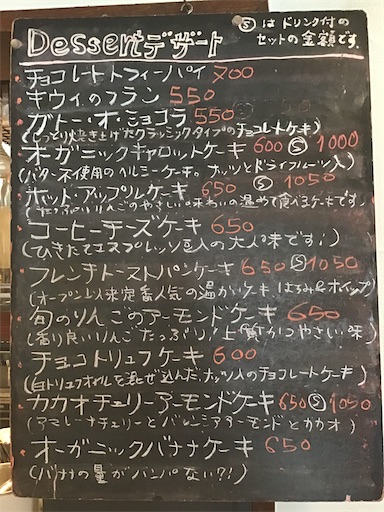 Dessert デザート
Ⓢ は ドリンク付の
セットの金額です。
チョコレートトフィーパイ 700
キウイのフラン 550
ガトー・オ・ショコラ 550
(しっとり焼き上げたクラシックタイプのチョコレートケーキ)
オーガニックキャロットケーキ 600 Ⓢ 1000
(バター不使用のヘルシーケーキ。ナッツとドライフルーツ入)
ホット・アップルケーキ 650 Ⓢ 1050
(たっぷりりんごのやさしい味わいの温めて食べるケーキです)
コーヒーチーズケーキ 650
(ひきたてエスプレッソ豆入の大人味です!)
フレンチトーストパンケーキ 650 Ⓢ 1050
(オープン以来定番人気の温かいケーキ はちみつ&ホイップ)
旬のりんごのアーモンドケーキ 650
(香り良いりんごたっぷり!上質かつやさしい味)
チョコトリュフケーキ 600
(白トリュフオイルを混ぜ込んだ、ナッツ入のチョコレートケーキ)
カカオチェリーアーモンドケーキ 650 Ⓢ 1050
(アマレーナチェリーとバレンシアアーモンドとカカオ)
オーガニックバナナケーキ 650
(バナナの量がハンパない?!)